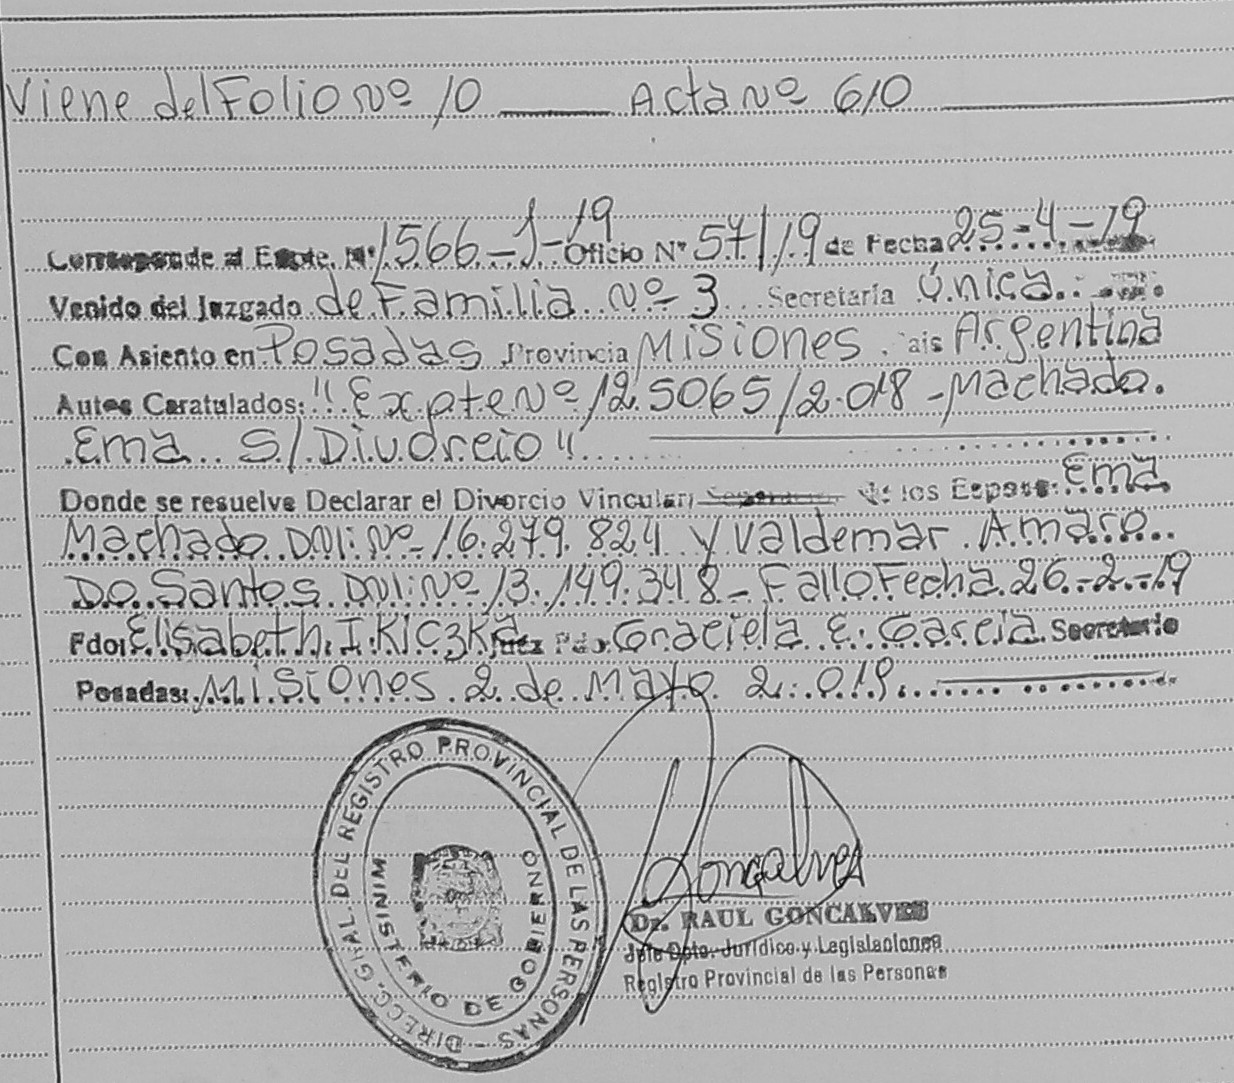 Viene del Folio Nº 10 ——— Acta Nº 610 ———
Corresponde al Expte. Nº 1566-J-19 Oficio Nº 571/19 de Fecha 25-4-19
Venido del Juzgado de Familia Nº 3 Secretaría Única.
Con Asiento en Posadas Provincia Misiones. ais Argentina
Autos Caratulados: "Expte Nº 125065/2.018 - Machado.
Ema S/Divorcio"
Donde se resuelve Declarar el Divorcio Vincular, de los Esposos: Ema
Machado DNI: Nº 16.279.824 y Valdemar Amaro
Do Santos DNI: Nº 13.149.348 - Fallo Fecha 26-2-19
Fdo: Elisabeth I. Kiczka Juez Fdo. Graciela E. Garcia Secretario
Posadas: Misiones 2 de Mayo 2.019
DIRECC. GRAL DEL REGISTRO PROVINCIAL DE LAS PERSONAS -
MINISTERIO DE GOBIERNO
Goncalves
Dr. RAUL GONCALVES
Jefe Dpto. Jurídico y Legislaciones
Registro Provincial de las Personas